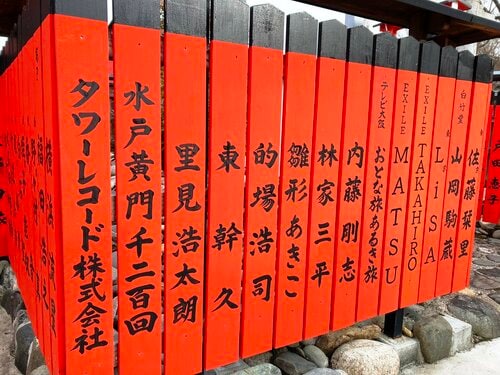 タワーレコード株式会社
水戸黄門千二百回
里見浩太朗
東幹久
的場浩司
雛形あきこ
林家三平
内藤剛志
テレビ大阪
おとな旅あるき旅
EXILE
MATSU
EXILE
TAKAHIRO
LiSA
山岡駒蔵
白竹堂
佐藤栞里